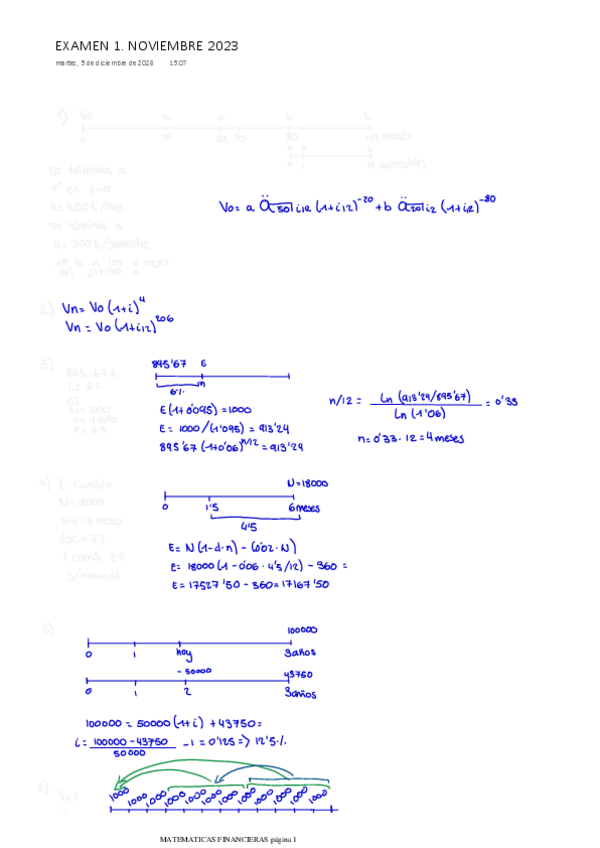 EXAMEN 1. NOVIEMBRE 2023
martes, 5 de diciembre de 2023 15:07
1) Vo a a a b b
0 20 69 70 80 110 meses
0 1 semestres
50 términos a
1º en t=0
a = 500€/mes
20 términos b
b = 800€/semestre
1er b a los 11 meses
del último a
Vo = a ä50|i12 (1+i12)^-20 + b ä20|i2 (1+i12)^-80
2) Vn = Vo (1+i)^4
Vn = Vo (1+i12)^206
3) 895,67€
i = 6%
LT
N = 1000
n = 1 año
r = 9'5
895'67 E
6% n
E(1+0'095) = 1000
E = 1000/(1'095) = 913'24
895'67 (1+0'06)^n/12 = 913'24
n/12 = Ln (913'24/895'67) / Ln (1'06) = 0'33
n = 0'33 · 12 = 4 meses
4) L. Cambio
N = 18000
Vto = 6 meses
dsc = 7%
+ com 2%
s/nominal
N = 18000
0 1'5 6 meses
4'5
E = N (1-d·n) - (0'02·N)
E = 18000 (1 - 0'06 · 4'5/12) - 360 =
E = 17527'50 - 360 = 17167'50
5)
100000
0 1 hoy 3 años
-50000 43750
0 1 2 3 años
100000 = 50000 (1+i) + 43750 =
i = 100000 - 43750 / 50000 - 1 = 0'125 => 12'5%
6) Vn?
1000 1000 1000 1000 1000 1000 1000 1000 1000 1000 1000 1000
MATEMATICAS FINANCIERAS página 1